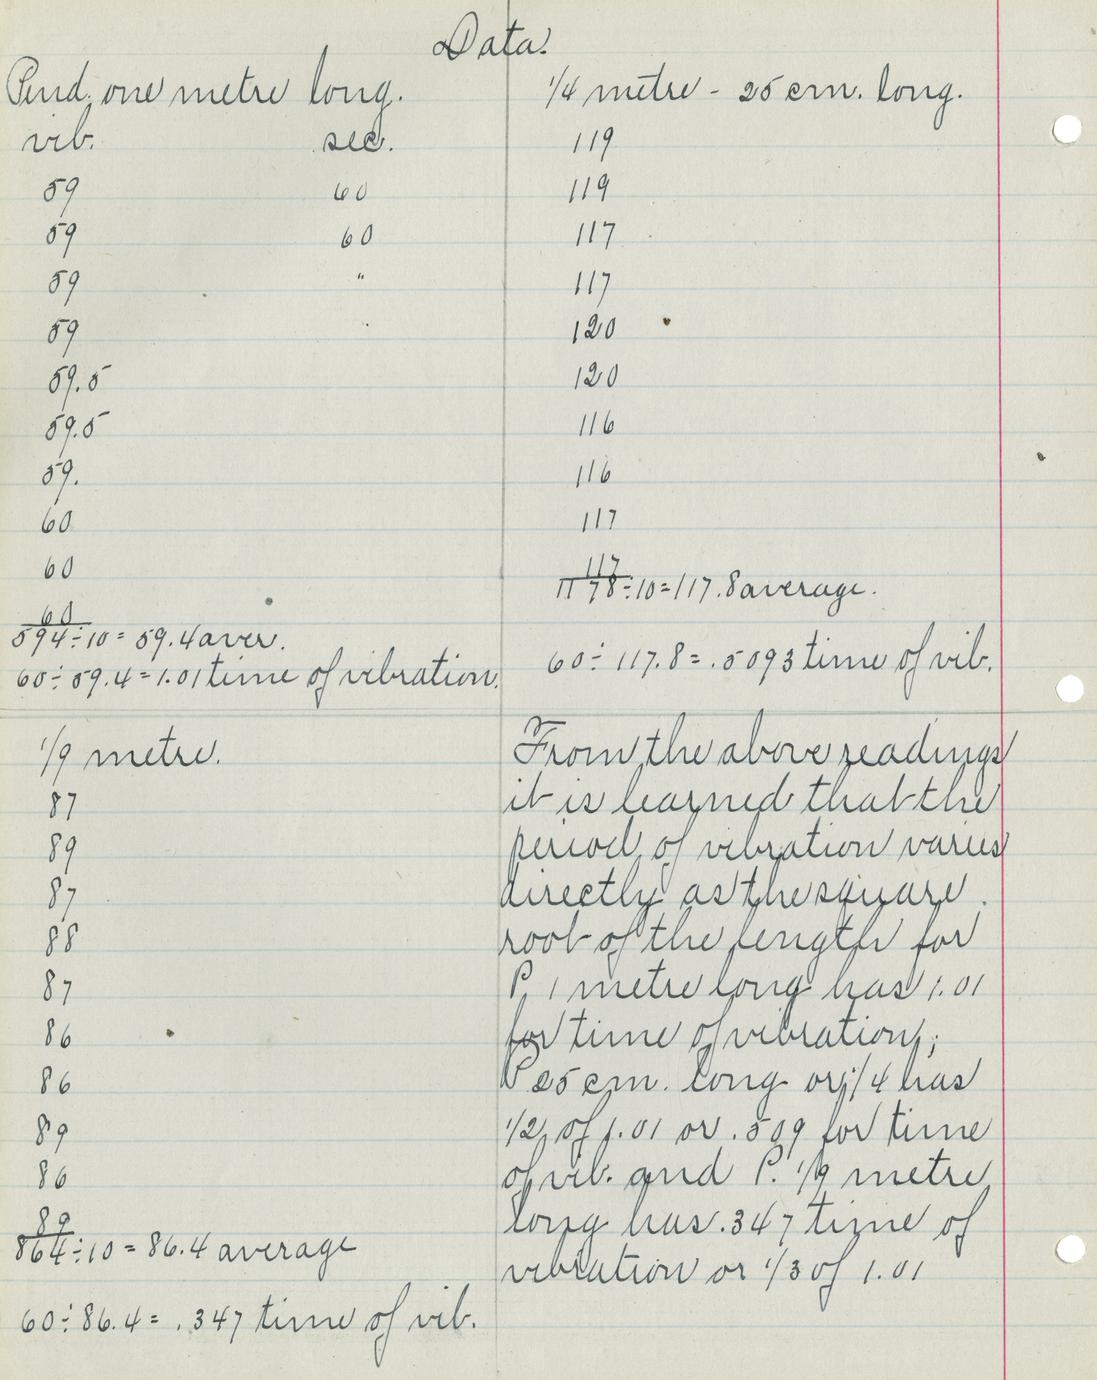 Data.
Pend. one metre long.
vib. sec.
59 60
59 60
59 "
59
59.5
59.5
59.
60
60
60
594÷10=59.4 aver.
60÷59.4=1.01 time of vibration.
1/4 metre - 25 cm. long.
119
119
117
117
120
120
116
116
117
117
1178÷10=117.8 average.
60÷117.8=.5093 time of vib.
1/9 metre.
87
89
87
88
87
86
86
89
86
89
864÷10=86.4 average
60÷86.4=.347 time of vib.
From the above readings
it is learned that the
period of vibration varies
directly as the square
root of the length for
P. 1 metre long has 1.01
for time of vibration;
P 25 cm. long or 1/4 has
1/2 of 1.01 or .509 for time
of vib. and P. 1/9 metre
long has .347 time of
vibration or 1/3 of 1.01